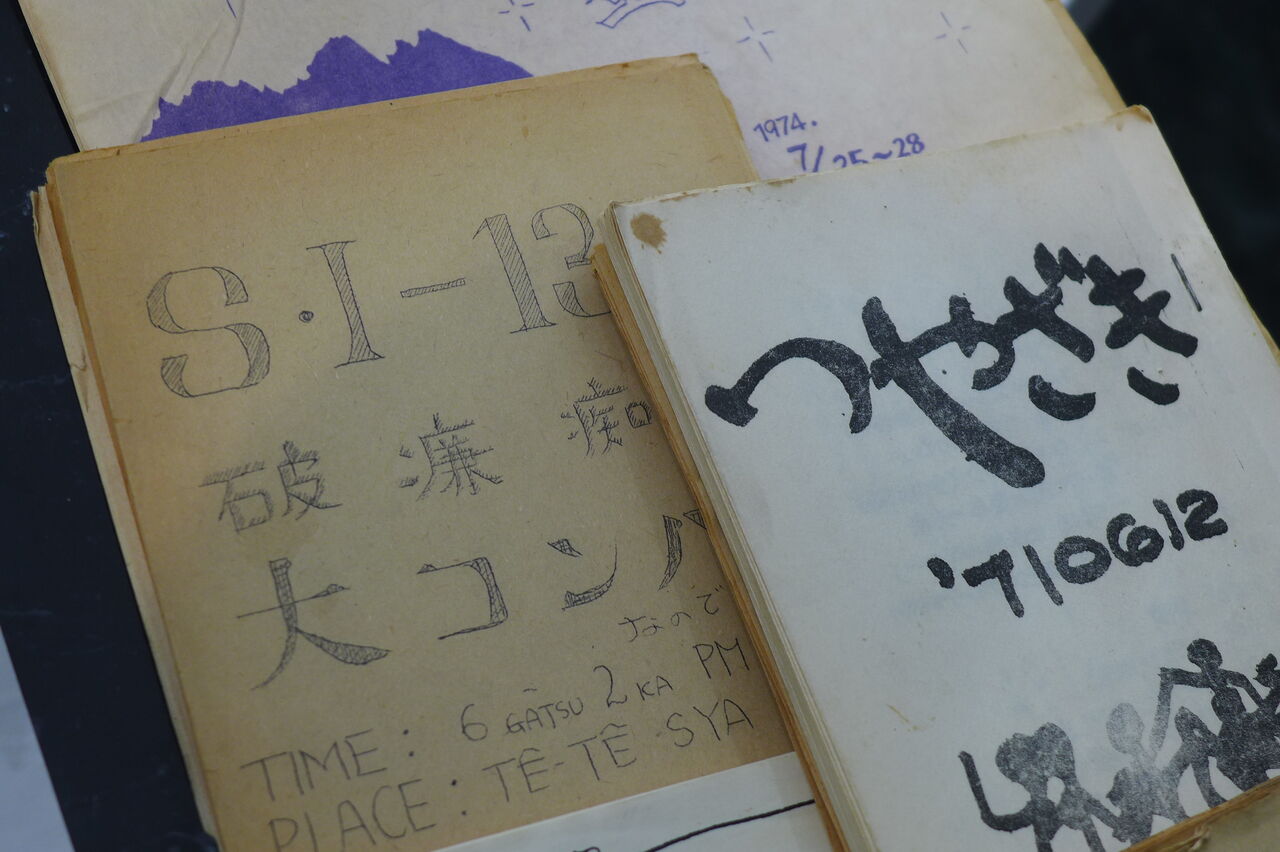 1974.
7/25~28
S・I-13
破廉痴
大コンパ
なので
TIME: 6 GATSU 2 KA PM
PLACE: TÊ-TÊ-SYA
つやざき
'710612